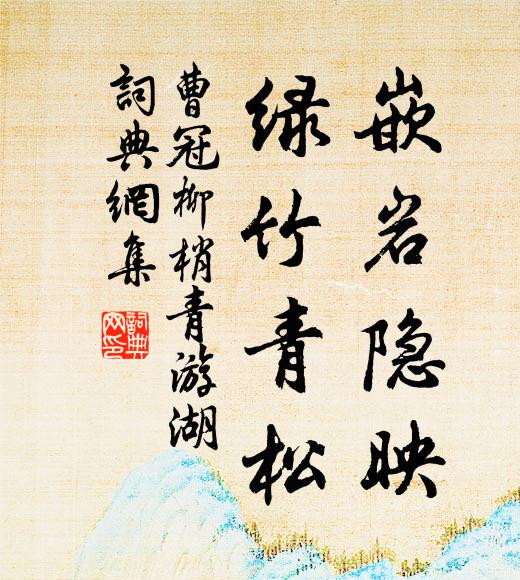 嵌岩隐映
绿竹青松
曹冠柳梢青游湖
詞典網集
詞典
网印